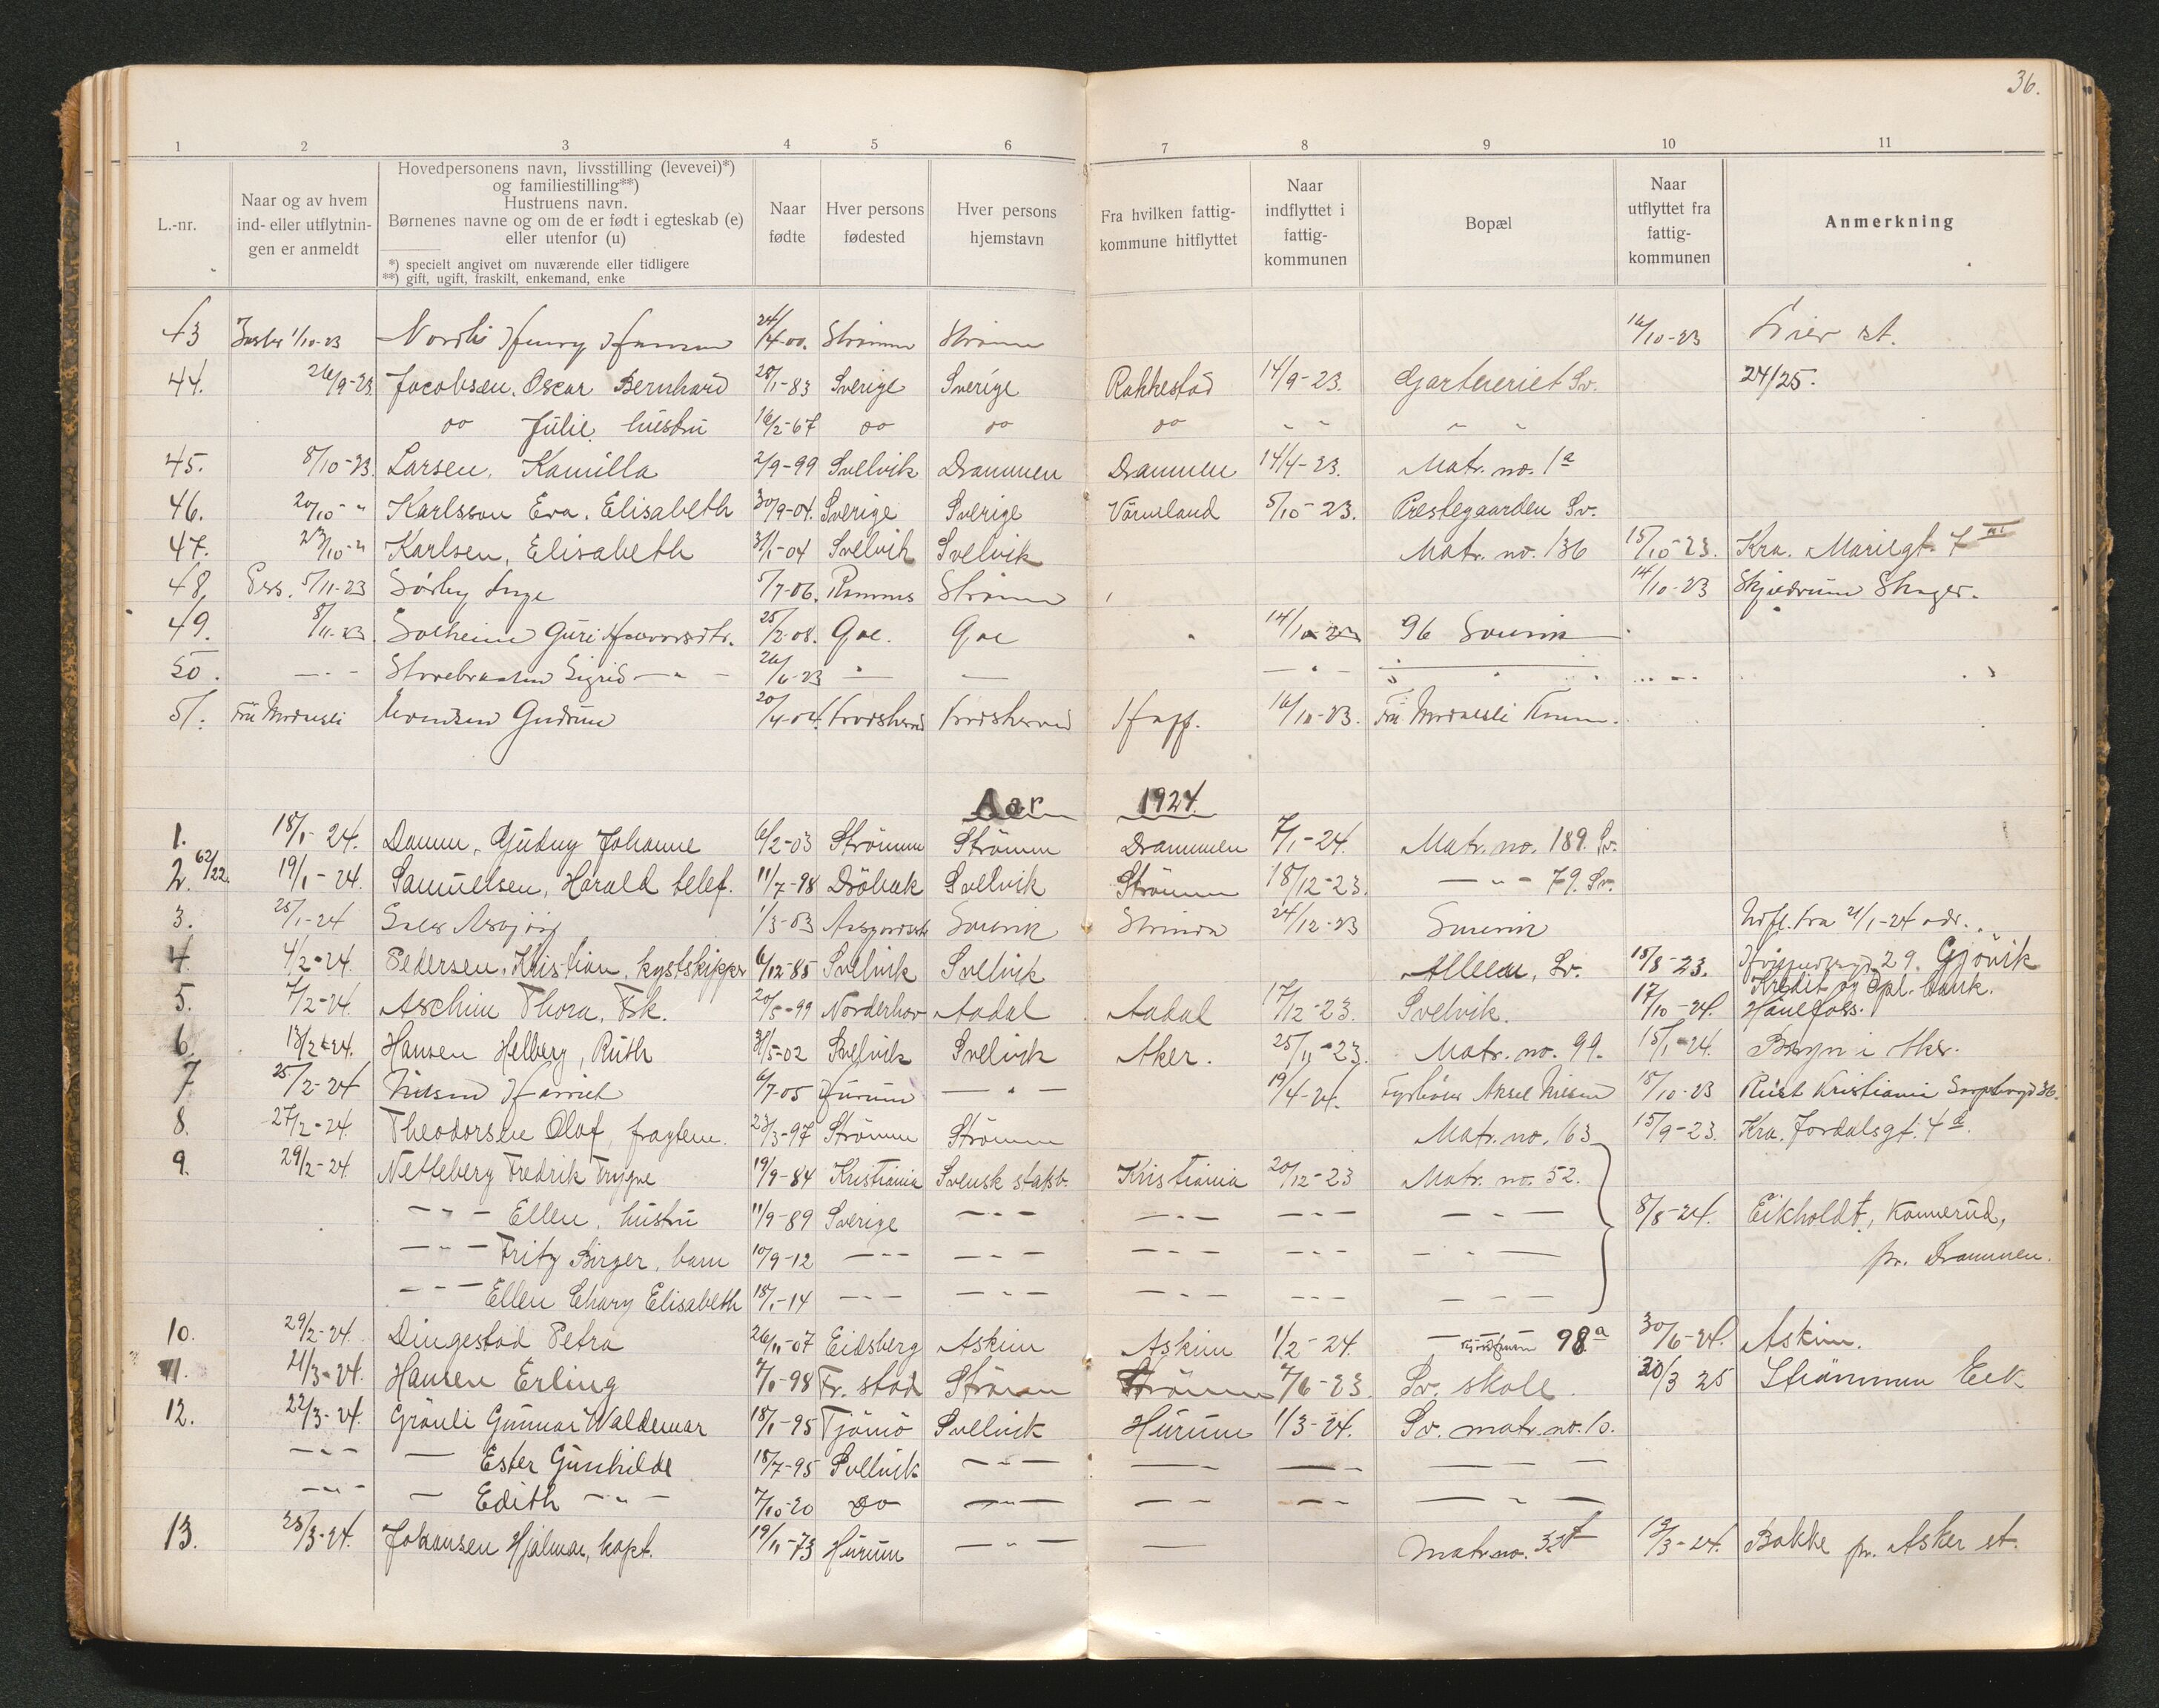 36.
1 2 3 4 5 6 7 8 9 10 11
L.-nr.
Naar og av hvem
ind- eller utflytnin-
gen er anmeldt
Hovedpersonens navn, livsstilling (levevei)*)
og familiestilling**)
Hustruens navn.
Børnenes navne og om de er født i egteskab (e)
eller utenfor (u)
*) specielt angivet om nuværende eller tidligere
**) gift, ugift, fraskilt, enkemand, enke
Naar
fødte
Hver persons
fødested
Hver persons
hjemstavn
Fra hvilken fattig-
kommune hitflyttet
Naar
indflyttet i
fattig-
kommunen
Bopæl
Naar
utflyttet fra
fattig-
kommunen
Anmerkning
43 1/10-23 Henry Hansen 24/4-00. Strømm Strømm 16/10-23 Lier st.
44. 26/9-23 Jacobsen, Oscar Bernhard 28/1-83 Sverige Sverige Rakkestad 14/9-23. Gartneriet Sv. 24/25.
do Julie, hustru 16/2-67 do do do " " " "
45. 8/10-23. Larsen, Kamilla 2/9-99 Svelvik Drammen Drammen 14/4-23. Matr. no. 1a
46. 20/10 - " Karlsson Eva, Elisabeth 30/9-04. Sverige Sverige Värmland 5/10-23. Prestegaarden Sv.
47. 23/10-" Karlsen, Elisabeth 31/1-04 Svelvik Svelvik Matr. no. 136 15/10-23. Kra. Mariegt. 7
48. 5/11-23 Sørby Inge 5/7-06. Strømm 14/10-23
49. 8/11-23 Solheim Guri 25/2-08. Gol. Gol 14/10-23 96 Svelvik
50. — " — Sigrid — " — 26/6-23
51. Gudrun 20/4-04. Krødsherred Krødsherred 16/10-23.
Aar 1924
1. 18/1-24. Damm, Gudny Johanne 6/2-03 Strömm Strömm Drammen 7/1-24. Matr. no. 189. Sv.
2. 62/22. 19/1-24. Samuelsen, Harald telef. 11/7-98 Dröbak Svelvik Strömm 18/12-23. — " — 79. Sv.
3. 25/1-24 1/3-03 Svelvik Strinda 24/12-23 Svelvik 21/1-24
4. 4/2-24. Pedersen, Kristian, kystskipper 6/12-85 Svelvik Svelvik Alleen, Sv. 15/8-23. 29. Gjövik
Kredit og bank.
5. 7/2-24. Aschim Thora, Frk. 20/5-99 Norderhov Aadal Aadal 17/12-23. Svelvik. 17/10-24. Hönefoss.
6. 13/2-24. Hansen Helberg, Ruth 31/5-02 Svelvik Svelvik Aker. 25/11-23. Matr. no. 99. 15/1-24. i Aker.
7 25/2-24 Nilsen Harriet 6/7-05 Hurum — " — 19/4-24. Aksel Nilsen 15/10-23 Kristiania 36.
8. 27/2-24. Theodorsen Olaf, fragtem. 23/3-97 Strömm Strömm Matr. no. 163 15/9-23. Kra. Jordalsgt. 4a
9. 29/2-24. Netteberg Fredrik Trygve 19/9-84 Kristiania Svensk statsb. Kristiania 20/12-23 Matr. no. 52.
— " — Ellen, hustru 11/9-89 Sverige — " — — " — — " — — " — 8/5-24. Eikholdt, Konnerud,
— " — Fritz Birger, barn 10/9-12 — " — — " — — " — — " — — " — pr. Drammen.
— " — Ellen Chary Elisabeth 18/1-14 — " — — " — — " — — " — — " —
10. 29/2-24. Dingestad Petra 26/11-07 Eidsberg Askim Askim 1/2-24. 98a 30/6-24. Askim.
11. 21/3-24. Hansen Erling 7/6-98 Fr. stad Strömm Strömm 7/6-23. Sv. skole. 20/3 25 Strömmen
12. 22/3-24. Grönli Gunnar Waldemar 18/1-95 Tjömö Svelvik Hurum 1/3-24. Sv. matr. no. 10.
— " — — Ester Gunhilde 18/7-95 Svelvik — " — — — — — — — —
— " — — Edith — " — 7/10-20 do — " — — — — " — — " —
13. 25/3-24. Johansen Hjalmar, kapt. 19/11-73 Hurum — " — — Matr. no. 32 12/3-24. Bakke pr. Asker st.